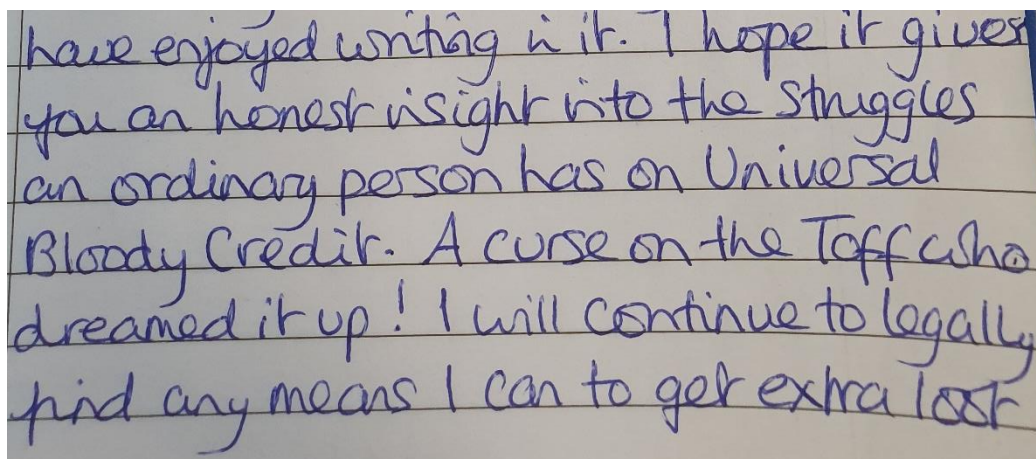 have enjoyed writing in it. I hope it gives
you an honest insight into the struggles
an ordinary person has on Universal
Bloody Credit. A curse on the Toff who
dreamed it up! I will continue to legally
find any means I can to get extra lost